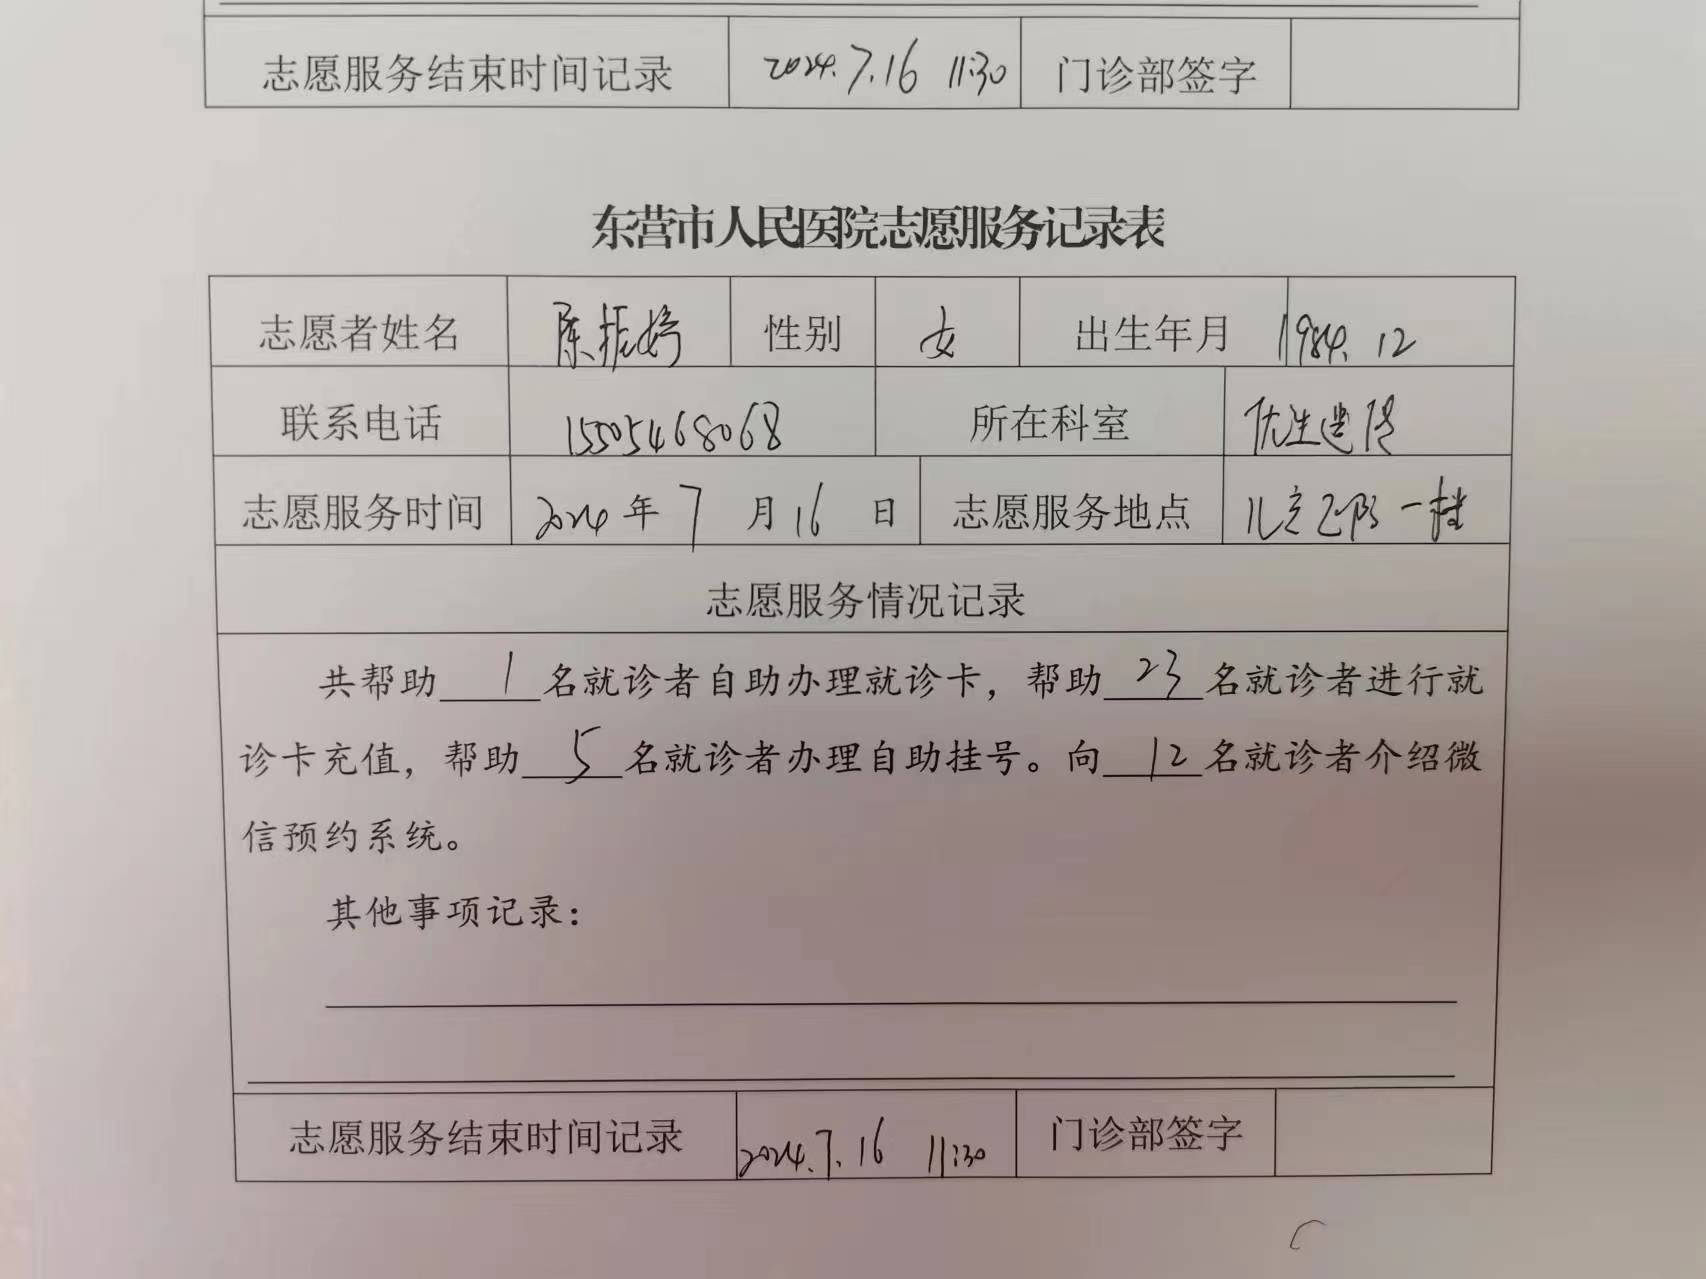 志愿服务结束时间记录 2024.7.16 11:30 门诊部签字
东营市人民医院志愿服务记录表
志愿者姓名 陈振婷 性别 女 出生年月 1984.12
联系电话 15505468068 所在科室 优生遗传
志愿服务时间 2024年7月16日 志愿服务地点 儿
志愿服务情况记录
共帮助1名就诊者自助办理就诊卡，帮助23名就诊者进行就
诊卡充值，帮助5名就诊者办理自助挂号。向12名就诊者介绍微
信预约系统。
其他事项记录：
志愿服务结束时间记录 2024.7.16 11:30 门诊部签字